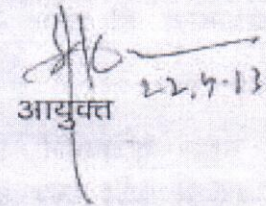 22.7.13
आयुक्त